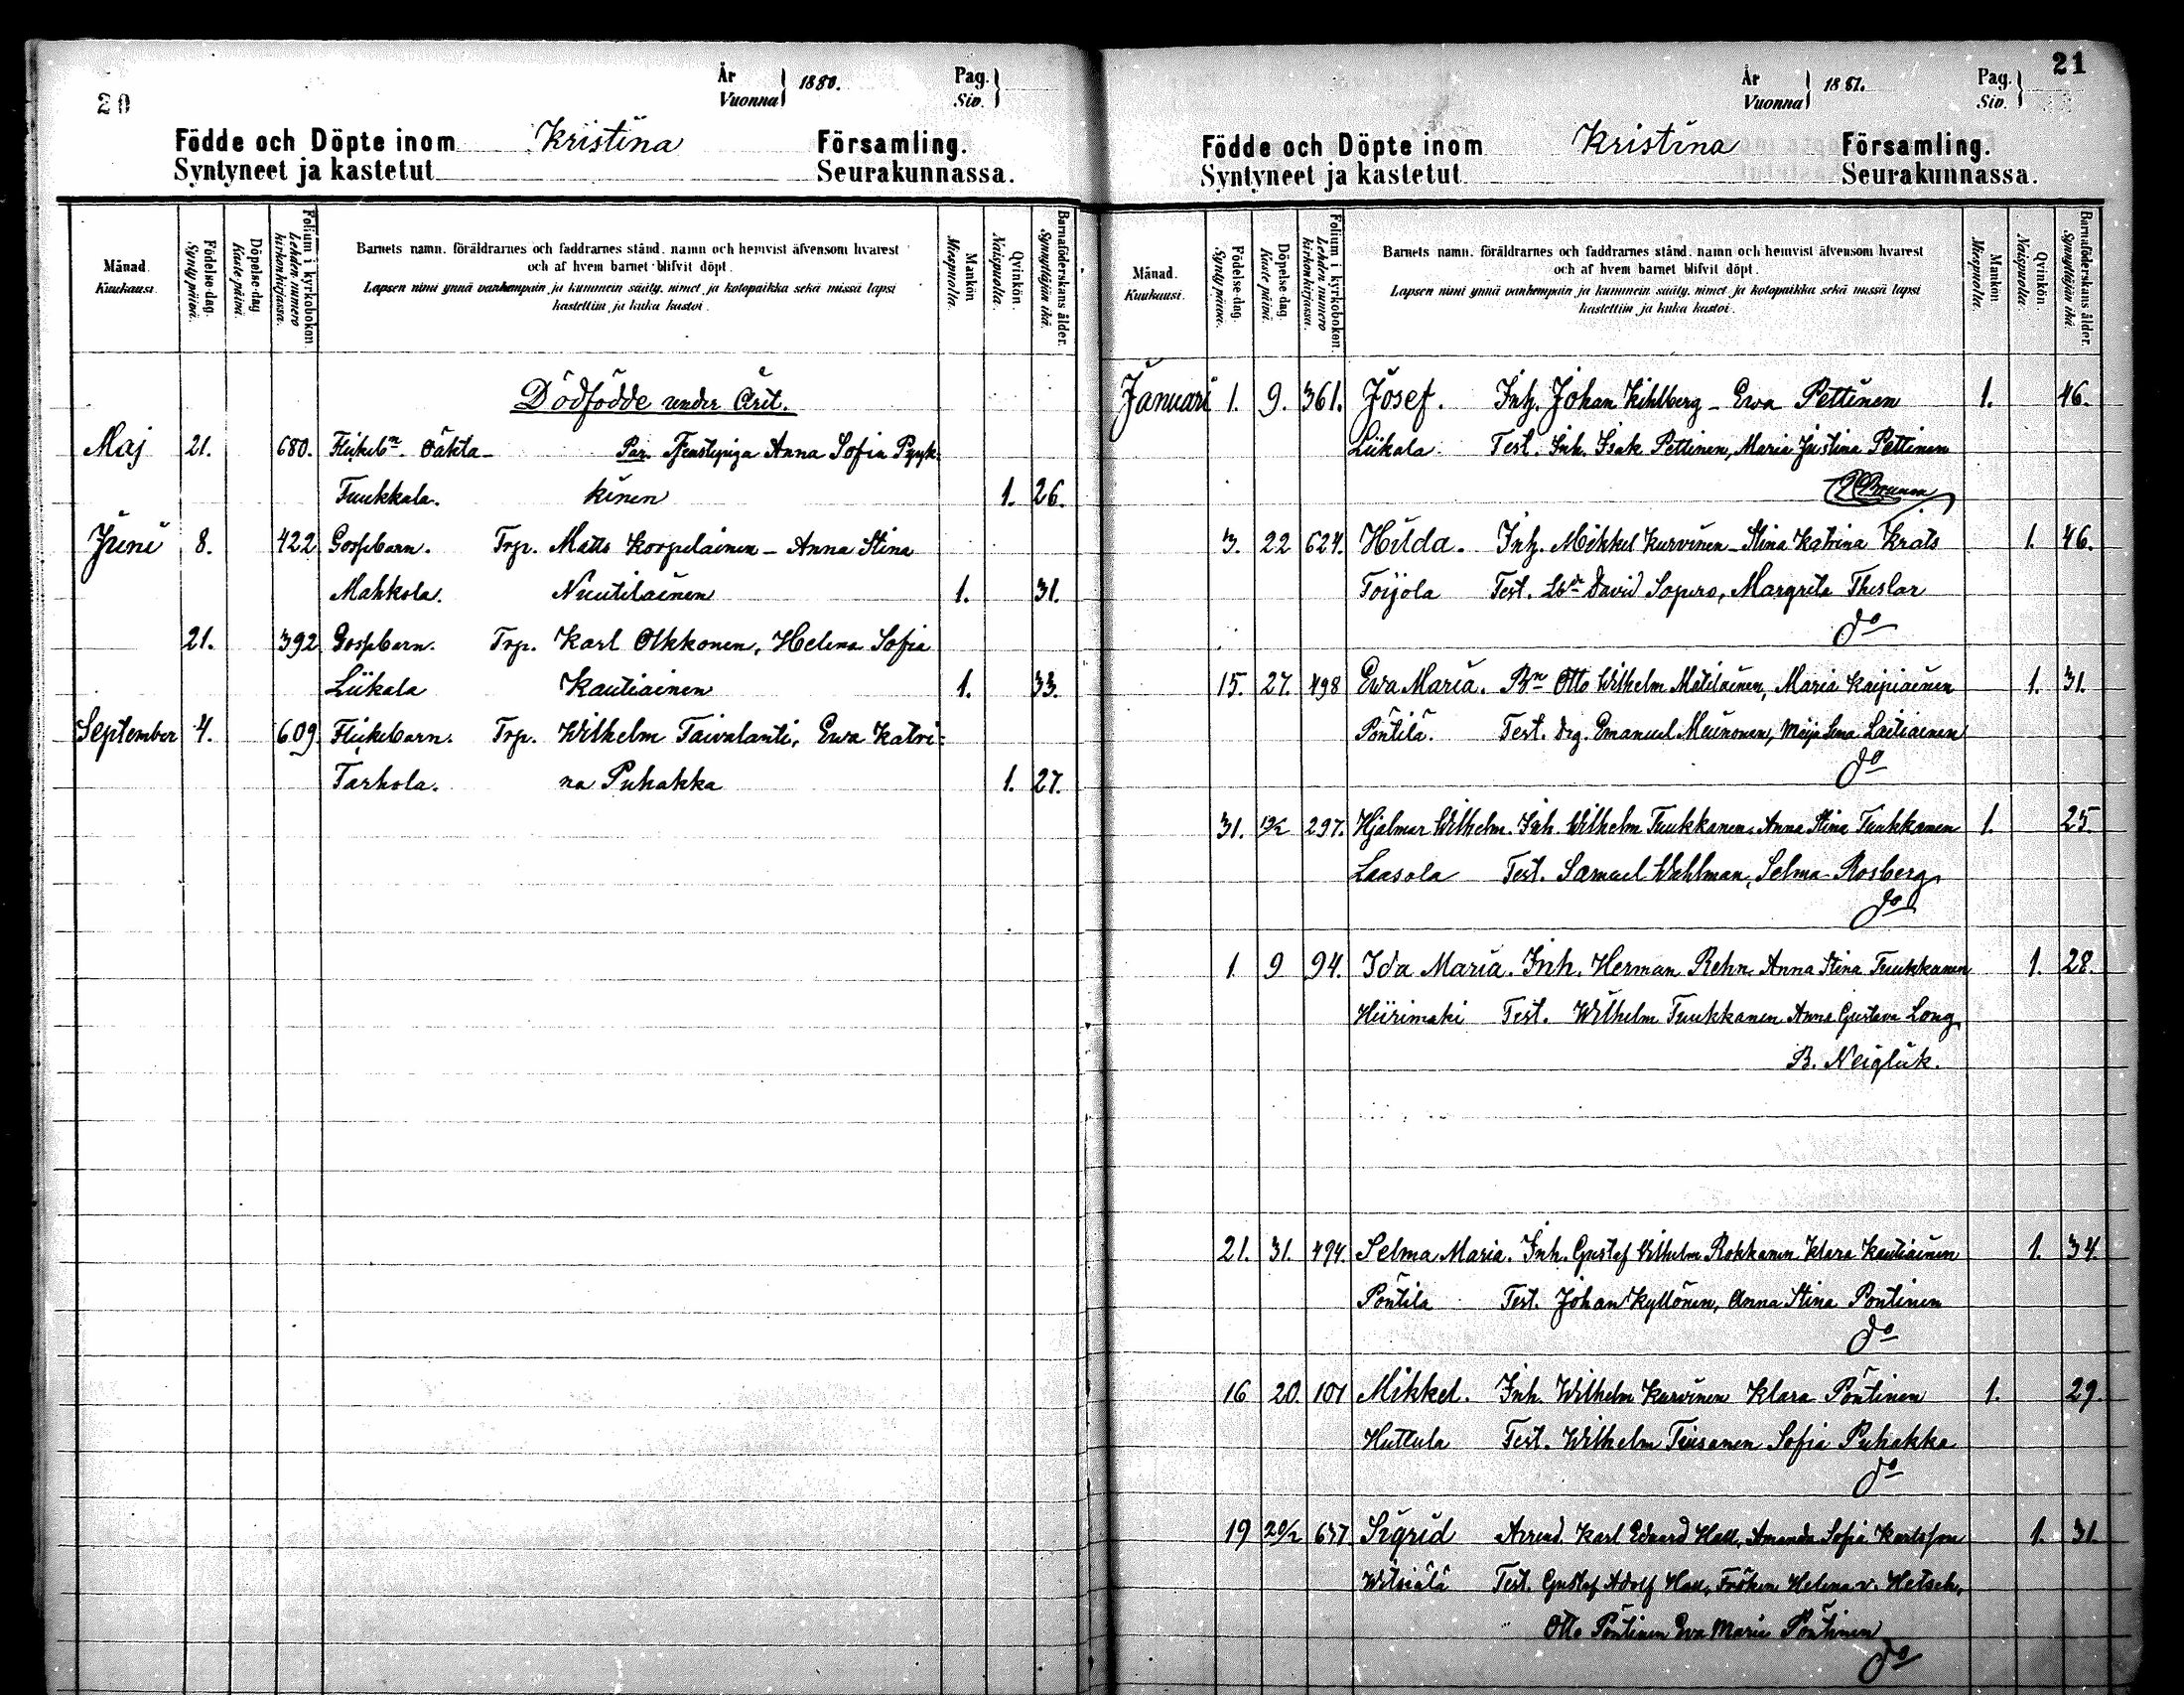 20
År
Vuonna
1880.
Pag.
Siv.
Födde och Döpte inom Kristina Församling.
Syntyneet ja kastetut Seurakunnassa.
Månad.
Kuukausi.
Födelse-dag.
Syntypäivä.
Döpelse-dag
Kastepäivä.
Folium i kyrkoboken.
Lehden numero kirkonkirjassa.
Barnets namn, föräldrarnes och faddrarnes stånd, namn och hemvist äfvensom hvarest
och af hvem barnet blifvit döpt.
Lapsen nimi ynnä vanhempain ja kummein sääty, nimet ja kotopaikka sekä missä lapsi
kastettiin ja kuka kastoi.
Mankön
Miespuolta.
Qvinkön.
Naispuolta.
Barnaföderskans ålder.
Synnyttäjän ikä.
Dödfödde under året.
Maj 21. 680. Flickebn oäkta Par. Tjenstepiga Anna Sofia Pyyk-
Tuukkala. kinen 1. 26.
Juni 8. 422 Gossebarn. Trp. Matts Korpelainen - Anna Stina
Mahkola. Nuutilainen 1. 31.
21. 392 Gossebarn. Trp. Karl Olkkonen, Helena Sofia
Liikala Kautiainen 1. 33.
September 4. 609. Flickebarn. Trp. Wilhelm Taivalanti, Ewa Katri-
Tarhola. na Puhakka 1. 27.
21
År
Vuonna
1881.
Pag.
Siv.
Födde och Döpte inom Kristina Församling.
Syntyneet ja kastetut Seurakunnassa.
Månad.
Kuukausi.
Födelse-dag.
Syntypäivä.
Döpelse-dag.
Kastepäivä.
Folium i kyrkoboken.
Lehden numero kirkonkirjassa.
Barnets namn, föräldrarnes och faddrarnes stånd, namn och hemvist äfvensom hvarest
och af hvem barnet blifvit döpt.
Lapsen nimi ynnä vanhempain ja kummein sääty, nimet ja kotopaikka sekä missä lapsi
kastettiin ja kuka kastoi.
Mankön
Miespuolta.
Qvinkön.
Naispuolta.
Barnaföderskans ålder.
Synnyttäjän ikä.
Januari 1. 9. 361. Josef. Inh. Johan Kihlberg - Ewa Pettinen 1. 46.
Liikala Test. Inh. Isak Pettinen, Maria Justina Pettinen
3. 22 624. Hilda. Inh. Mikkel Kurvinen - Stina Katrina Krats 1. 46.
Toijola Test. David Sopero, Margreta Theslar
do
15. 27. 498 Ewa Maria. Bn Otto Wilhelm Matilainen, Maria Kaipiainen 1. 31.
Pöntilä. Test. Drg. Emanuel Meinonen, Maija Lena Laitiainen
do
31. 13/2 297. Hjalmar Wilhelm. Inh. Wilhelm Tuukkanen, Anna Stina Tuukkanen 1. 25.
Laasola Test. Samuel Wahlman, Selma Rosberg
do
1. 9 94. Ida Maria. Inh. Herman Rehn, Anna Stina Tuukkanen 1. 28.
Hiirimäki Test. Wilhelm Tuukkanen Anna Gustava Long
B. Neiglick.
21. 31. 494. Selma Maria. Inh. Gustaf Wilhelm Rokkanen Klara Kautiainen 1. 34.
Pöntilä Test. Johan Kyllönen, Anna Stina Pöntinen
do
16 20. 101 Mikkel. Inh. Wilhelm Karvinen Klara Pöntinen 1. 29.
Huttula Test. Wilhelm Tiusanen Sofia Puhakka
do
19 20/2 637. Sigrid Arrend. Karl Eduard Hall, Amanda Sofia Karlsson 1. 31.
Witsiälä Test. Gustaf Adolf Hall, Fröken Helena v. Hetsch,
Otto Pöntinen Eva Maria Pöntinen
do